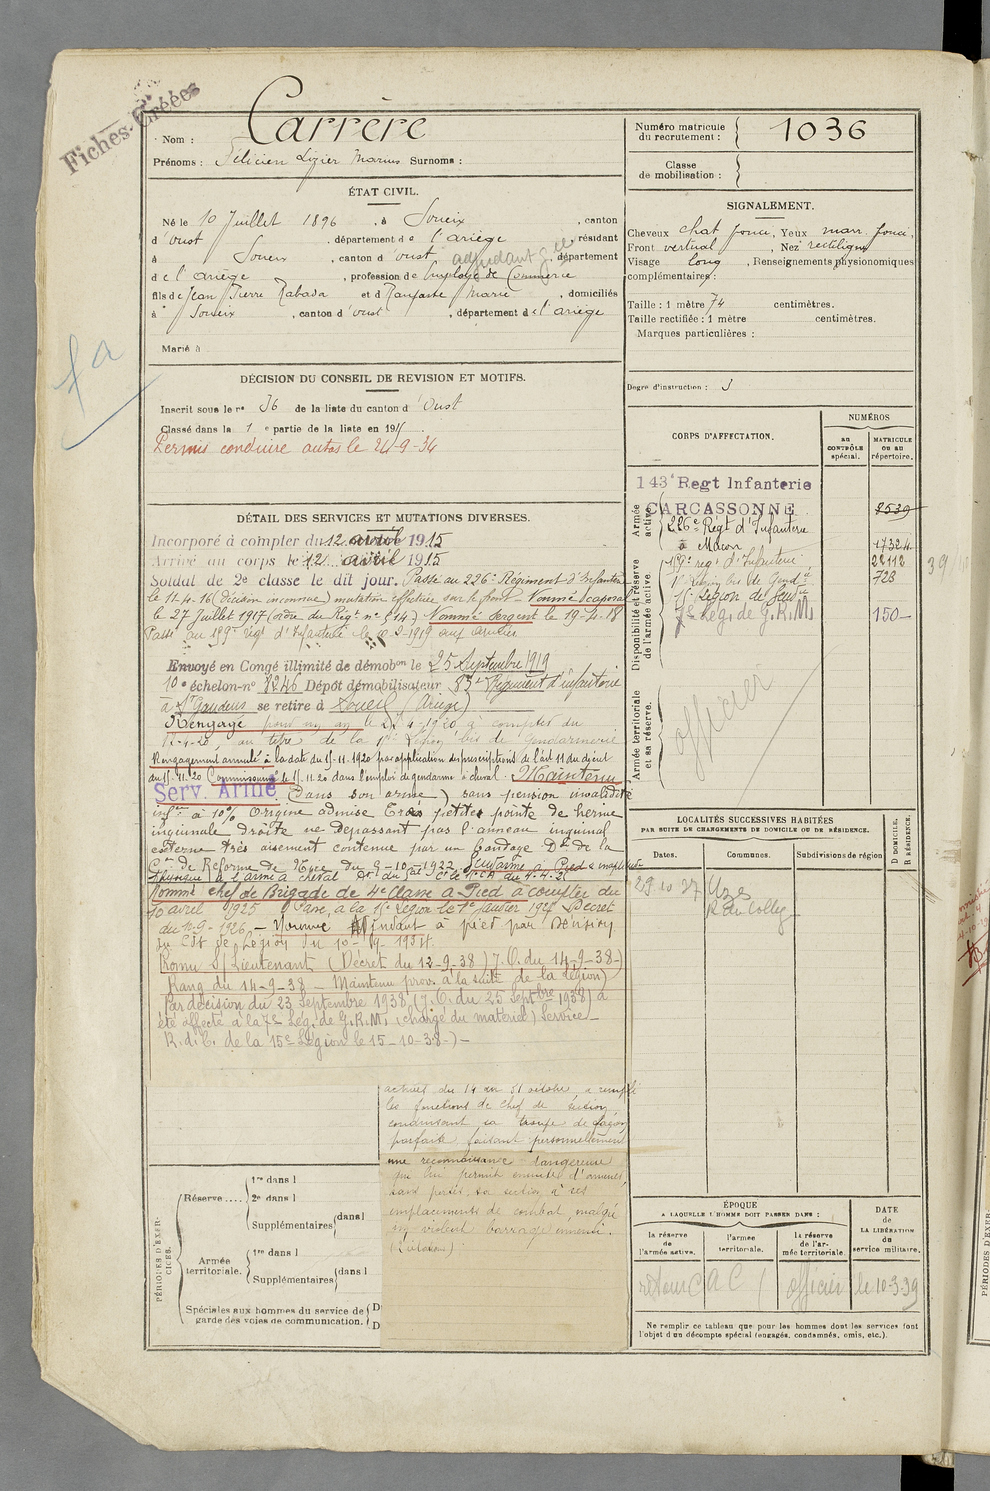 Fiches Créées
Nom : Carrère
Prénoms : Félicien Lizier Marius Surnoms :
Numéro matricule
du recrutement : 1036
Classe
de mobilisation :
ÉTAT CIVIL.
Né le 10 Juillet 1896, à Soueix, canton
d'Oust, département de l'ariège, résidant
à Soueix, canton d'oust, département
adjudant gie
de l'ariège, profession de Employé de Commerce
fils de Jean Pierre Rabada et d Ranfaste Marie, domiciliés
à Soueix, canton d'oust, département de l'ariège
Marié à
SIGNALEMENT.
Cheveux chat foncé, Yeux marr. foncé,
Front vertical, Nez rectiligne
Visage long, Renseignements physionomiques
complémentaires :
Taille : 1 mètre 74 centimètres.
Taille rectifiée : 1 mètre centimètres.
Marques particulières :
Degré d'instruction : 3
fa
DÉCISION DU CONSEIL DE REVISION ET MOTIFS.
Inscrit sous le n° 36 de la liste du canton d'Oust
Classé dans la 1e partie de la liste en 1915.
Permis conduire autos le 24-9-34
CORPS D'AFFECTATION.
NUMÉROS
au
CONTRÔLE
spécial.
MATRICULE
OU AU
répertoire.
Armée
active.
143e Regt Infanterie
CARCASSONNE 8539
226e Régt d'Infanterie
à Macon 17324
Disponibilité et réserve
de l'armée active.
159e reg d'Infanterie 22112
1e Légion bis de Gendie 728
15e Légion de Gendie
7e Lég. de G.R.M. 150
Armée territoriale
et sa réserve.
officier
DÉTAIL DES SERVICES ET MUTATIONS DIVERSES.
Incorporé à compter du 12 avril 1915
Arrivé au corps le 12 avril 1915
Soldat de 2e classe le dit jour. Passé au 226e Régiment d'Infanterie
le 11-4-16 (décision inconnue) mutation effectuée sur le front - Nommé Caporal
le 27 Juillet 1917 (ordre du Régt n° 514) Nommé Sergent le 19-4-18
Passé au 159e régt d'Infanterie le -2-1919
Envoyé en Congé illimité de démobon le 25 Septembre 1919
10e échelon n° 8246 Dépôt démobilisateur 83e Régiment d'infanterie
à St Gaudens se retire à Soueix (Ariège)
Rengagé pour un an le 4-1920 à compter du
4-20, au titre de la 1e Légion bis de Gendarmerie
Rengagement annulé à la date du 15-11-1920 par application des prescriptions de l'art 11 du décret
du 15-11-20 Commissionné le 15-11-20 dans l'emploi de gendarme à cheval. Maintenu
Serv. Armé (Dans son arme) sans pension invalidité
infre à 10% Origine admise Très petite pointe de hernie
inguinale droite ne dépassant pas l'anneau inguinal
externe très aisément contenue par un bandage Don de la
Con de Réforme de Nice du 9-10-1922. Gendarme à Pied
Nommé chef de Brigade de 4e Classe à Pied à compter du
10 avril 1925 Passé à la 15e Légion le 1er Janvier Décret
du -9-1926 - Nommé Adjudant à pied par Décision
du Cdt de Légion du 10-9-1934.
Promu S/Lieutenant (Décret du 12-9-38) J.O. du 14-9-38-)
Rang du 14-9-38 - Maintenu prov. à la suite de la légion)
Par décision du 23 Septembre 1938 (J.O. du 25 Septbre 1938) a
été affecté à la 7e Lég. de G.R.M. (chargé du matériel) Service
R. d. C. de la 15e Légion le 15-10-38-)-
actuel du 14 au 31 octobre a rempli
les fonctions de chef de section
conduisant sa troupe de façon
parfaite faisant personnellement
une reconnaissance dangereuse
qui lui permit ensuite d'amener,
sans pertes, sa section à ses
emplacements de combat malgré
un violent barrage ennemi.
LOCALITÉS SUCCESSIVES HABITÉES
PAR SUITE DE CHANGEMENTS DE DOMICILE OU DE RÉSIDENCE.
D DOMICILE.
R RÉSIDENCE.
Dates. Communes. Subdivisions de région
29 10 27 Uzès
R. du Collège
PÉRIODES D'EXER-
CICES.
Réserve ....
1re dans l
2e dans l
Supplémentaires dans l
Armée
territoriale.
1re dans l
Supplémentaires dans l
Spéciales aux hommes du service de
garde des voies de communication. D
D
ÉPOQUE
A LAQUELLE L'HOMME DOIT PASSER DANS :
la réserve
de
l'armée active.
l'armée
territoriale.
la réserve
de l'ar-
mée territoriale.
DATE
de
LA LIBÉRATION
du
service militaire.
retour C A C / officier le 10-3-39
Ne remplir ce tableau que pour les hommes dont les services font
l'objet d'un décompte spécial (engagés, condamnés, omis, etc.).